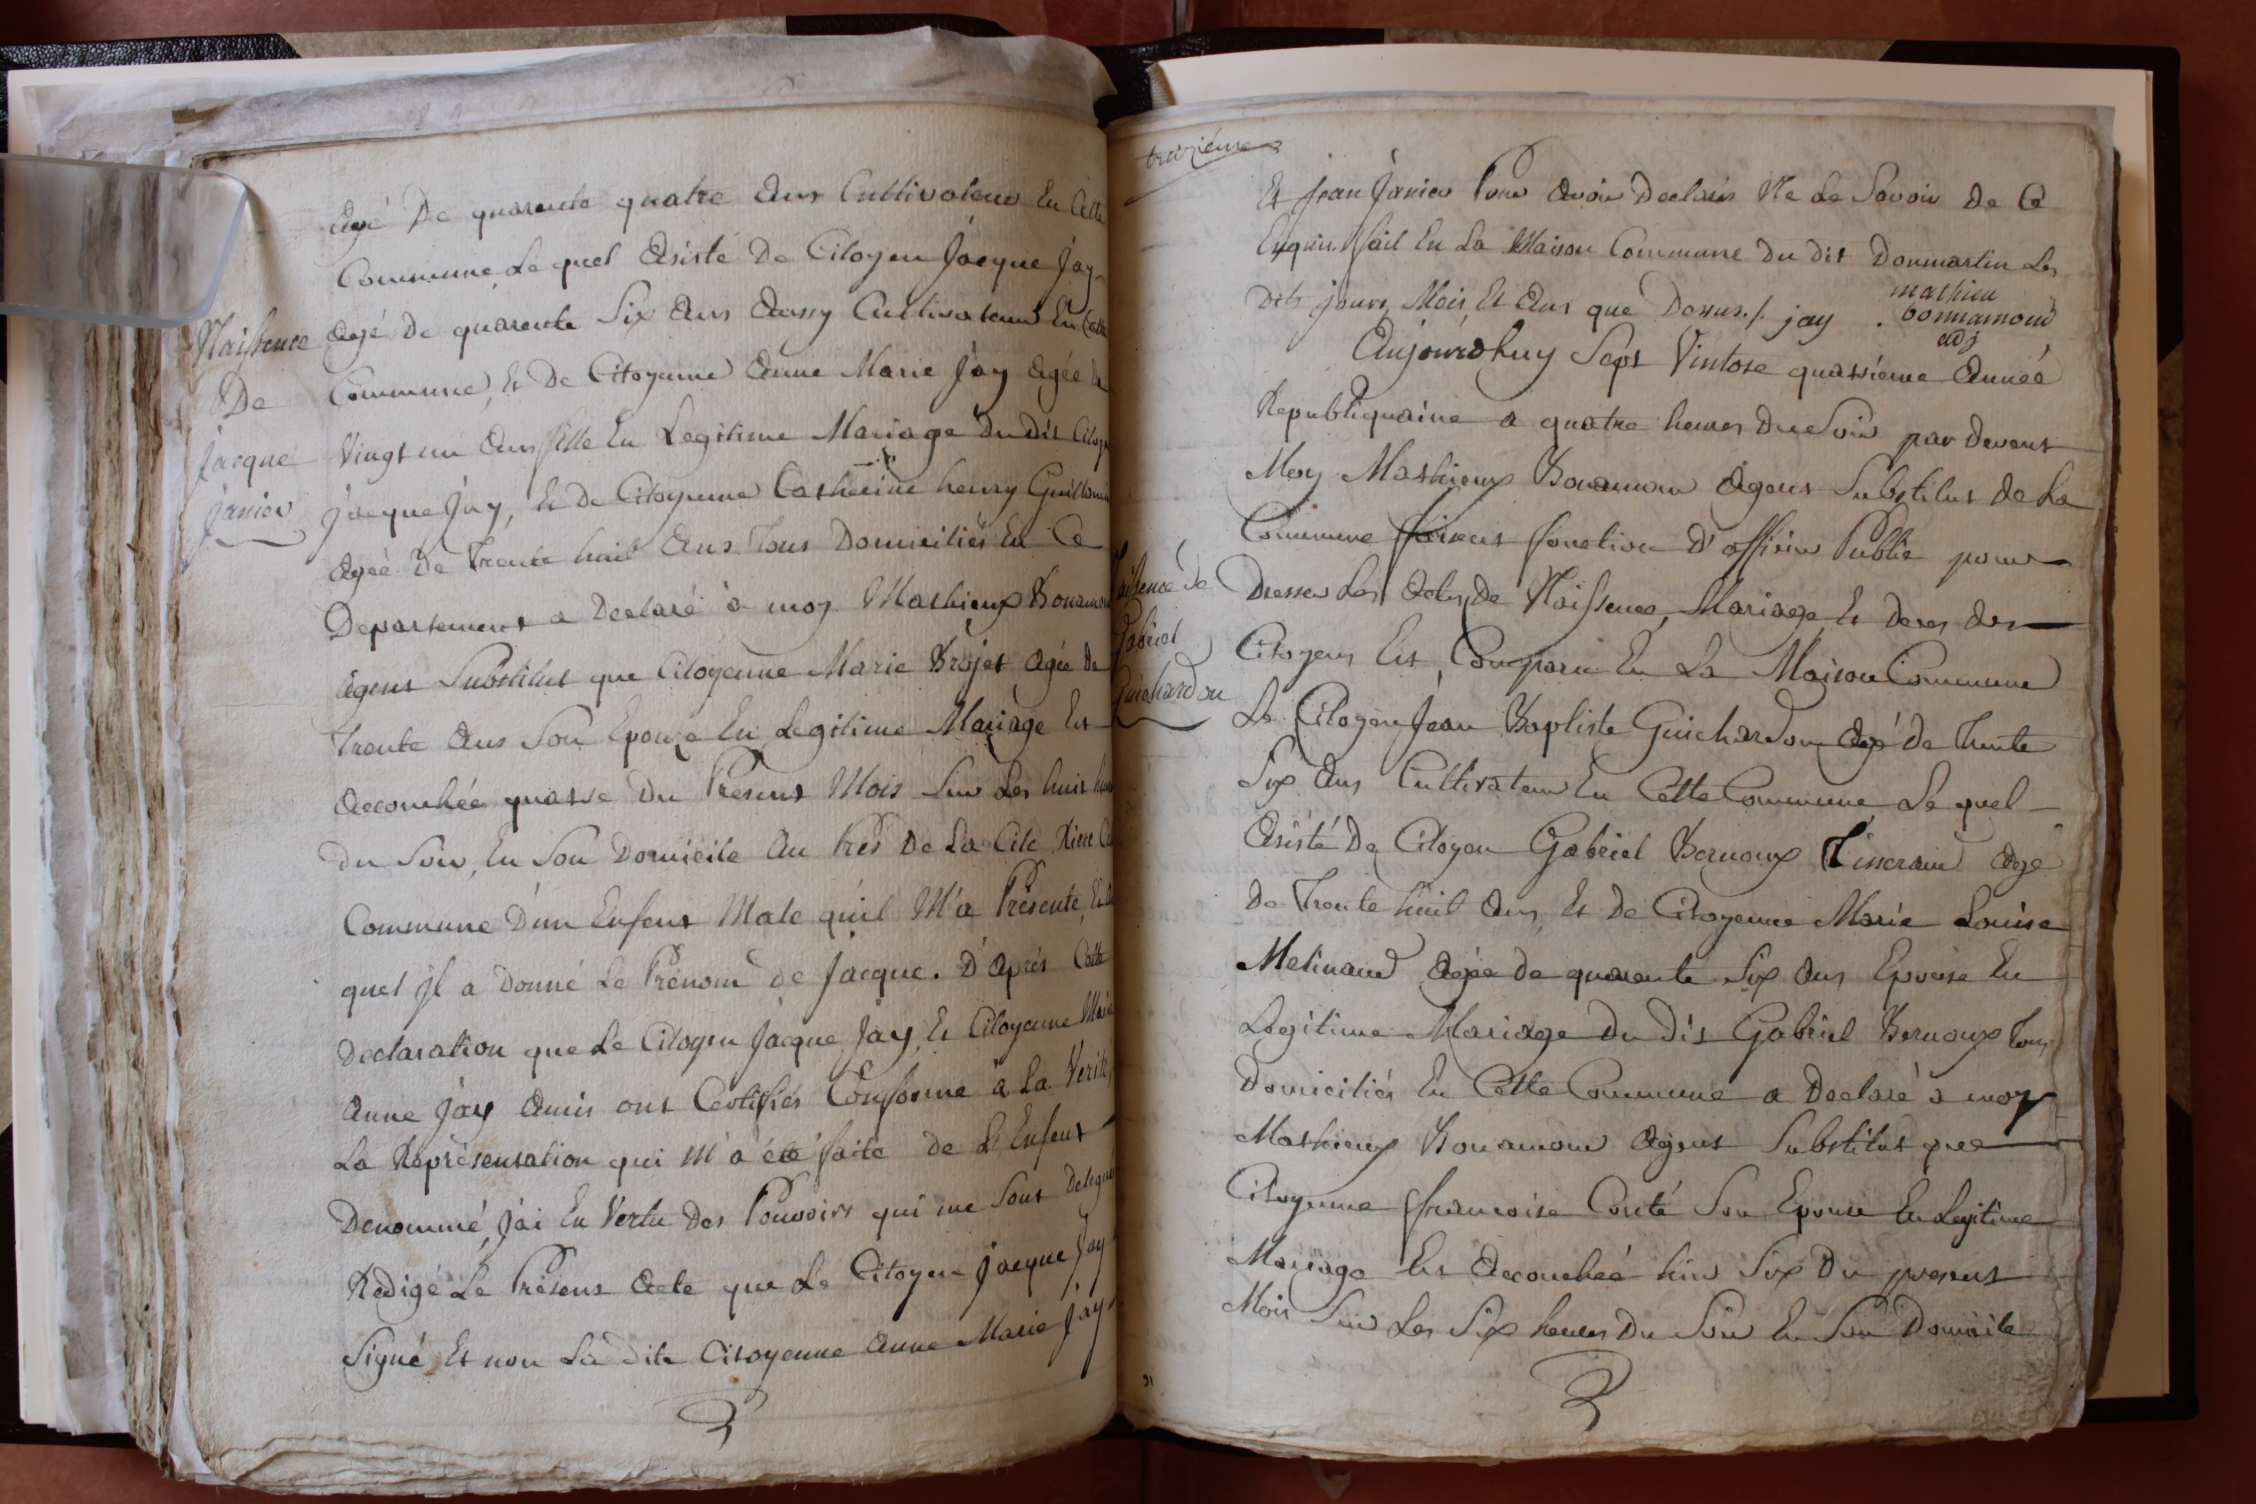 agé De quarente quatre ans Cultivateur En Cette
Commune, Le quel Asisté De Citoyen Jacque Jay
agé de quarente Six ans Aussy Cultivateur En Cette
Commune, Et De Citoyenne Anne Marie Jay agée de
Vingt un ans fille En Legitime Mariage Du Dit Citoyen
jacque Jay, Et de Citoyenne Catherine henry Guillomin
agée De Trente huit Ans Tous Domiciliés En Ce
Departement a Declaré à moy Mathieux Bonnamour
agent Substitut que Citoyenne Marie Brojet agée De
Trente Ans Son Epouze En Legitime Mariage Est
accouchée quatre Du Present Mois Sur Les huit heures
du Soir, En Son Domicile Au Près De La Cité
Commune D'un Enfent Male qu'il M'a Présenté, Et au
quel jl a Donné Le Prénom de Jacque. D'Après Cette
Declaration que Le Citoyen Jacque Jay, Et Citoyenne Marie
Anne Jay Amis ont Certifiés Conforme à La Verité,
La Représentation qui M'a été faite de L'Enfent
Denommé, J'ai En Vertu Des Pouvoirs qui me Sont Delegués
Redigé Le Présent Acte que Le Citoyen Jacque Jay
Signé, Et non La Dite Citoyenne Anne Marie Jay
Naissence
De
Jacque
janier
treizieme
Et Jean Janier Pour Avoir Declarés Ne Le Savoir De Ce
Enquis. fait En La Maison Commune Du Dit Donmartin Les
Dits jours, Mois, Et Ans que Dessus./. jay . mathieu
bonnamour
adj
Aujourdhuy Sept Vintose quatrieme Année
Republiquaine a quatre heures Du Soir par Devent
Moy Mathieux Bonamour Agent Substitut de La
Commune faisent fonction D'officier Public pour
Dresser Les Actes, De Naissence, Mariage, Et Deces des
Citoyens Est, Comparu En La Maison Commune
Le Citoyen Jean Baptiste Guichardon Agé De Trente
Six Ans Cultivateur En Cette Commune Le quel
Asisté De Citoyen Gabriel Bernoux Tisseran Agé
De Trente huit Ans, Et De Citoyenne Marie Louise
Melinand Agée de quarente Six Ans Epouse En
Legitime Mariage Du Dit Gabriel Bernoux Tous
Domiciliés En Cette Commune a Declaré à moy
Mathieux Bonamour Agent Substitut que
Citoyenne francoise Conté Son Epouse En Legitime
Mariage Est Accouchée hier Six Du present
Mois Sur Les Six heures Du Soir En Son Domicile
Naissence de
Gabriel
Guichardon